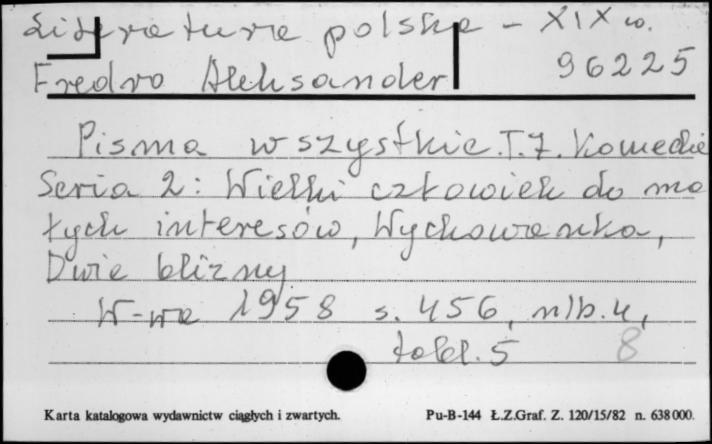 Literatura polska - XIX w.
Fredro Aleksander 96225
Pisma wszystkie. T. 7. Komedie
Seria 2: Wielki człowiek do ma
łych interesów, Wychowanka,
Dwie blizny
W-wa 1958 s. 456, nlb. 4,
tabl. 5 8
Karta katalogowa wydawnictw ciągłych i zwartych. Pu-B-144 Ł.Z.Graf. Z. 120/15/82 n. 638000.